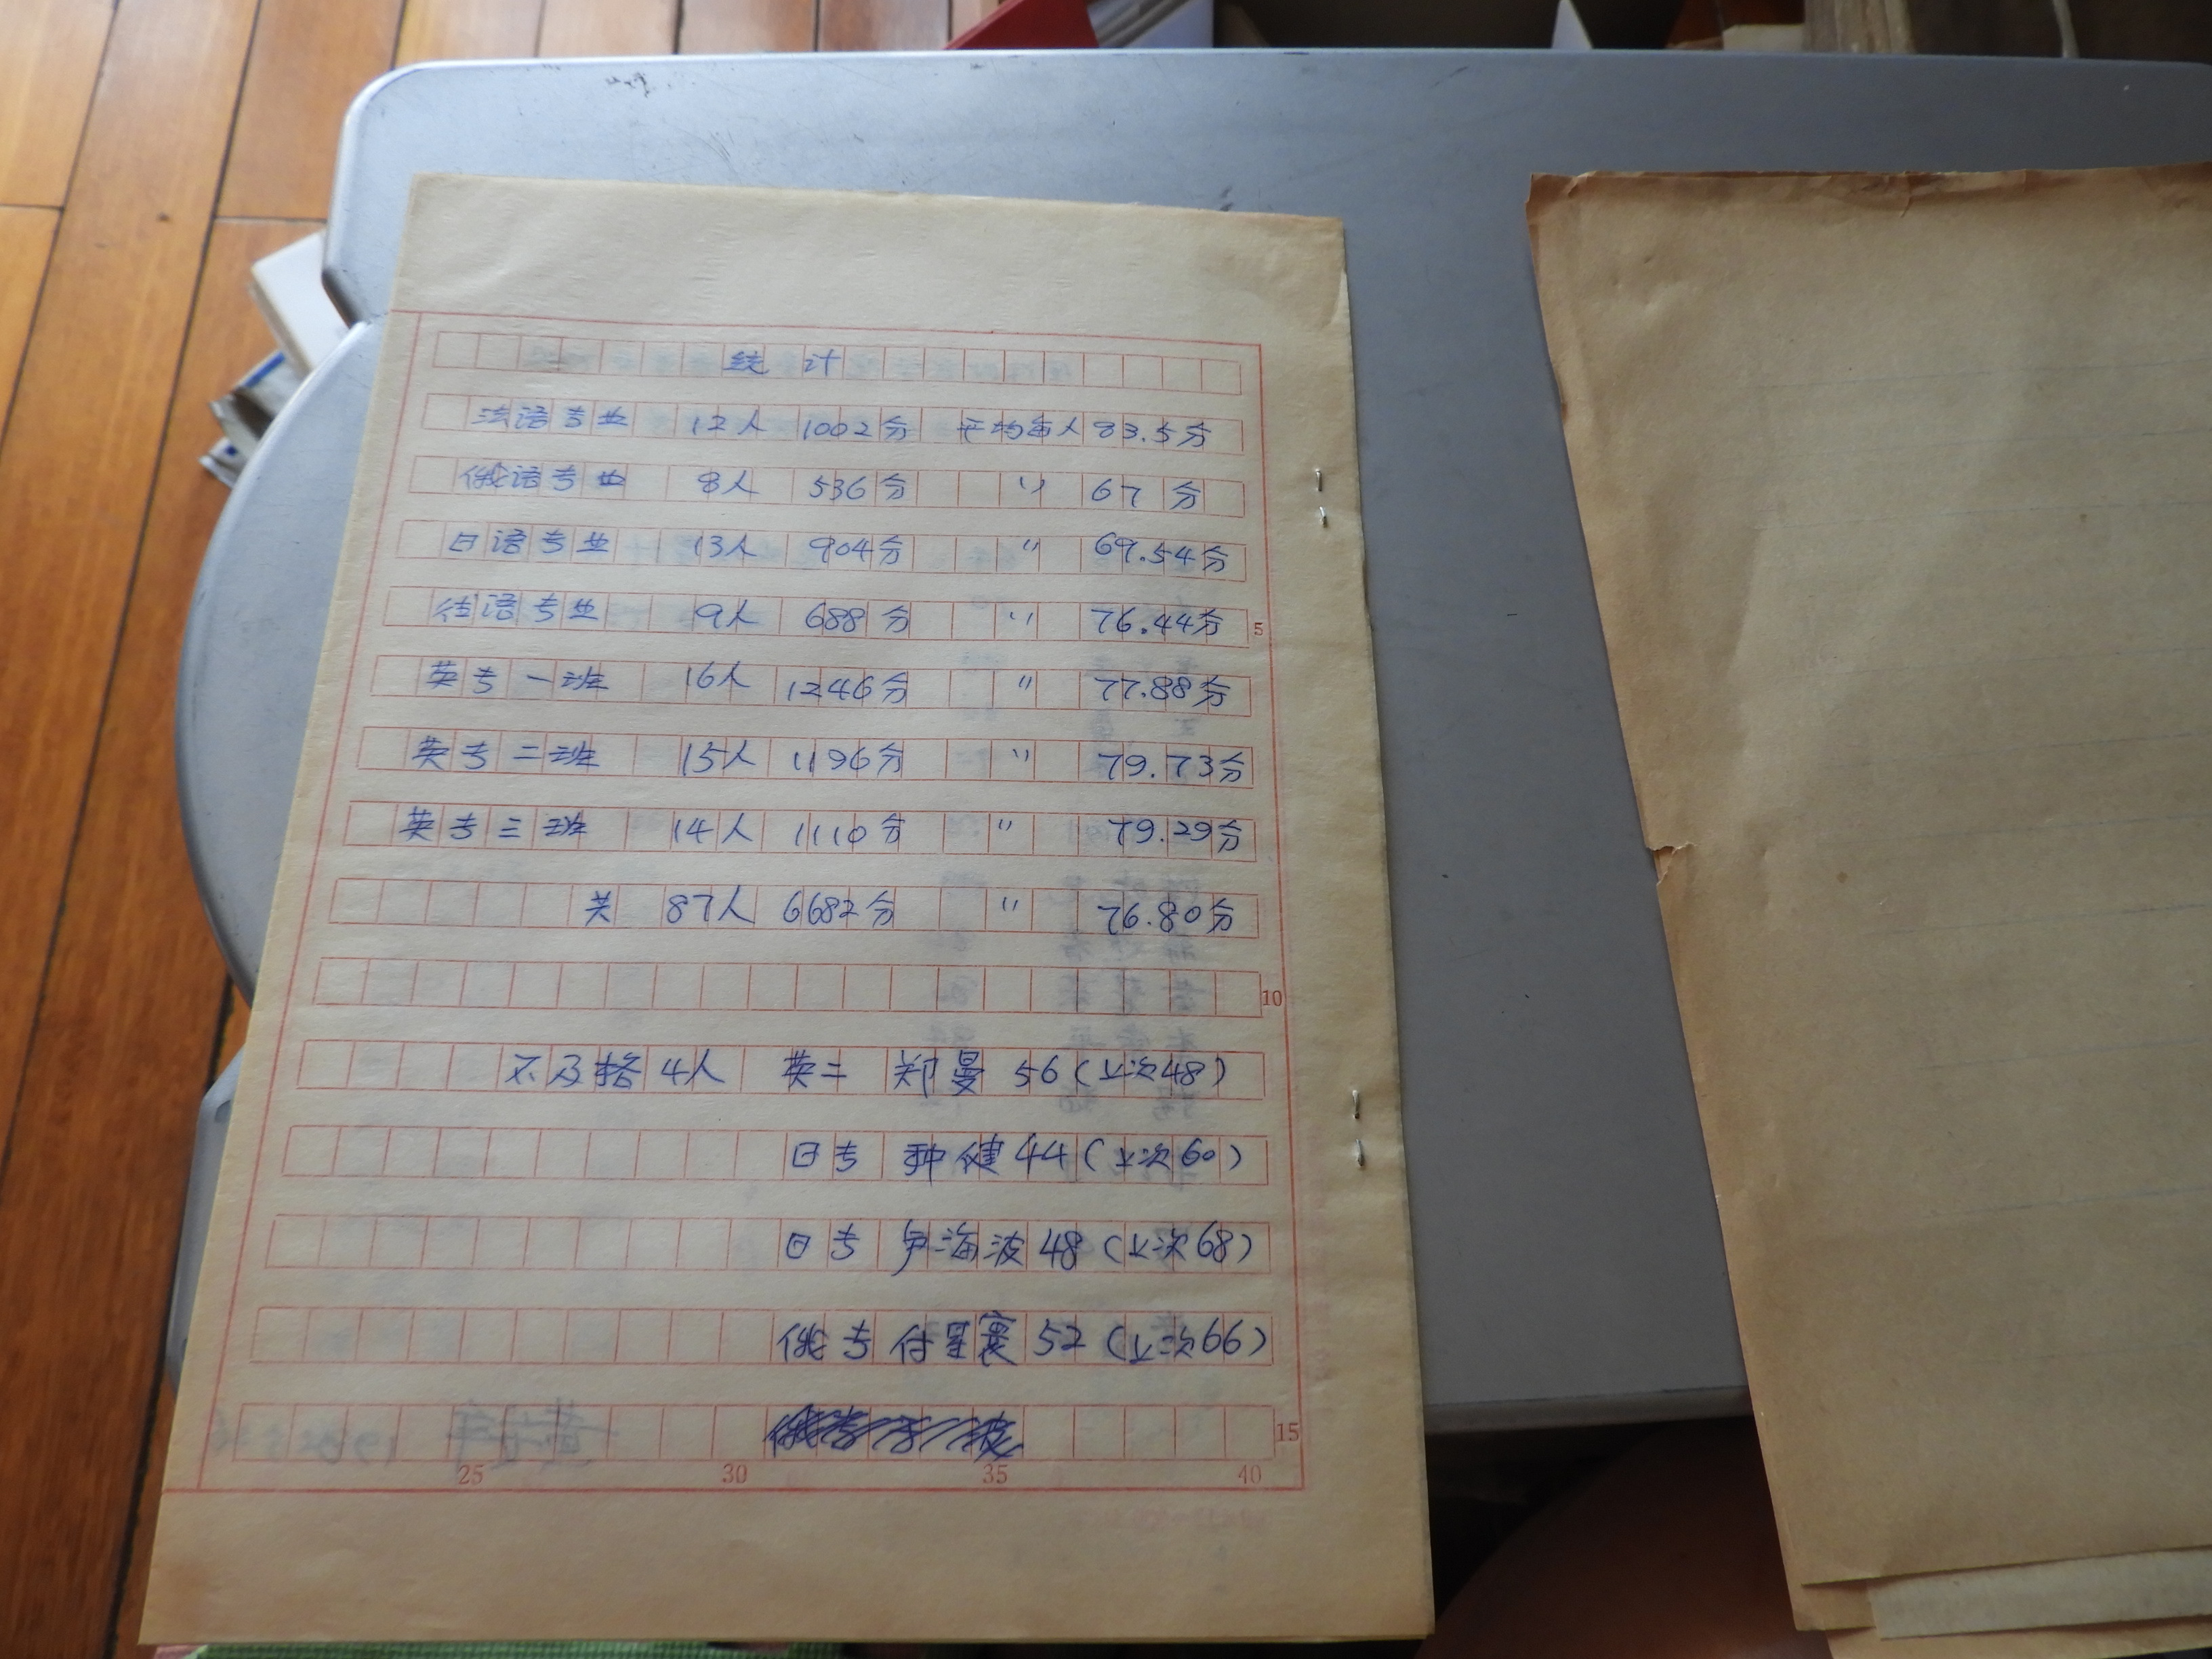 统计
法语专业 12人 1002分 平均每人83.5分
俄语专业 8人 536分 〃 67分
日语专业 13人 904分 〃 69.54分
5
德语专业 9人 688分 〃 76.44分
英专一班 16人 1246分 〃 77.88分
英专二班 15人 1196分 〃 79.73分
英专三班 14人 1110分 〃 79.29分
共 87人 6682分 〃 76.80分
10
不及格4人 英二 郑曼 56(上次48)
日专 种健 44(上次60)
日专 尹海波 48(上次68)
俄专 付星寰 52(上次66)
15
25 30 35 40